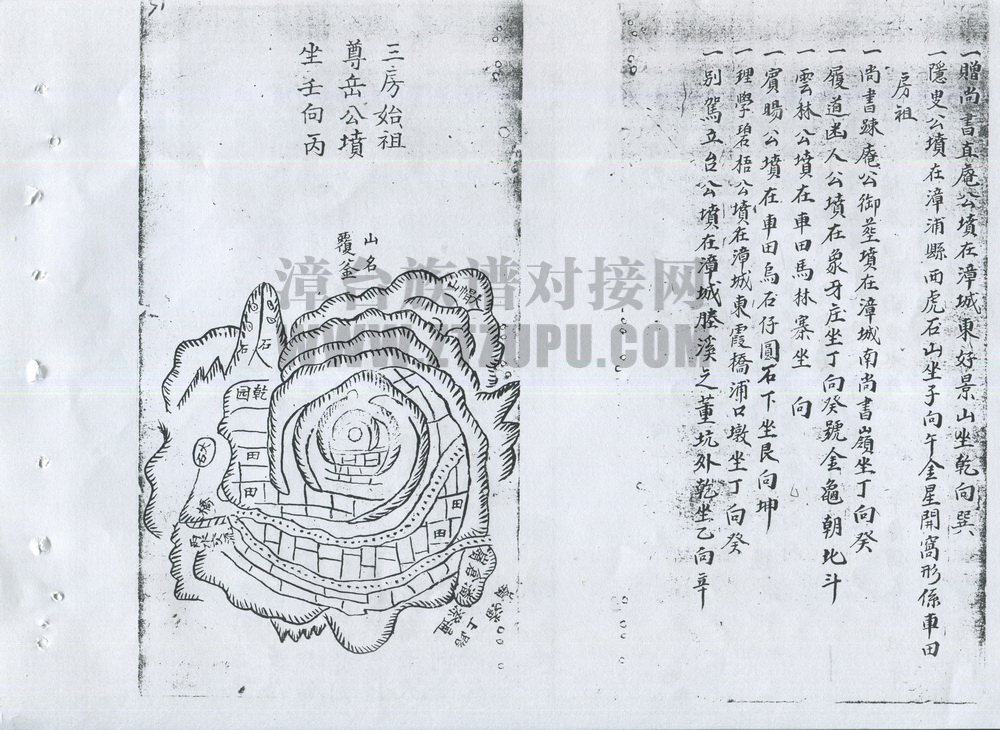 一贈尚書直庵公墳在漳城東好景山坐乾向巽
一隱叟公墳在漳浦縣西虎石山坐子向午金星開窩形係車田
房祖
一尚書踈庵公御塋墳在漳城南尚書嶺坐丁向癸
一履道幽人公墳在象牙庄坐丁向癸號金龜朝北斗
一雲林公墳在車田馬林寨坐 向
一賓暘公墳在車田烏石仔圓石下坐艮向坤
一理學碧梧公墳在漳城東霞橋浦口墩坐丁向癸
一别駕立台公墳在漳城塍溪之董坑外乾坐乙向辛
三房始祖
尊岳公墳
坐壬向丙
山名
覆釜
石
石
乾園
田
田
田
田
橋
兩水交流
漳台族谱对接网
WWW.ZTZUPU.COM